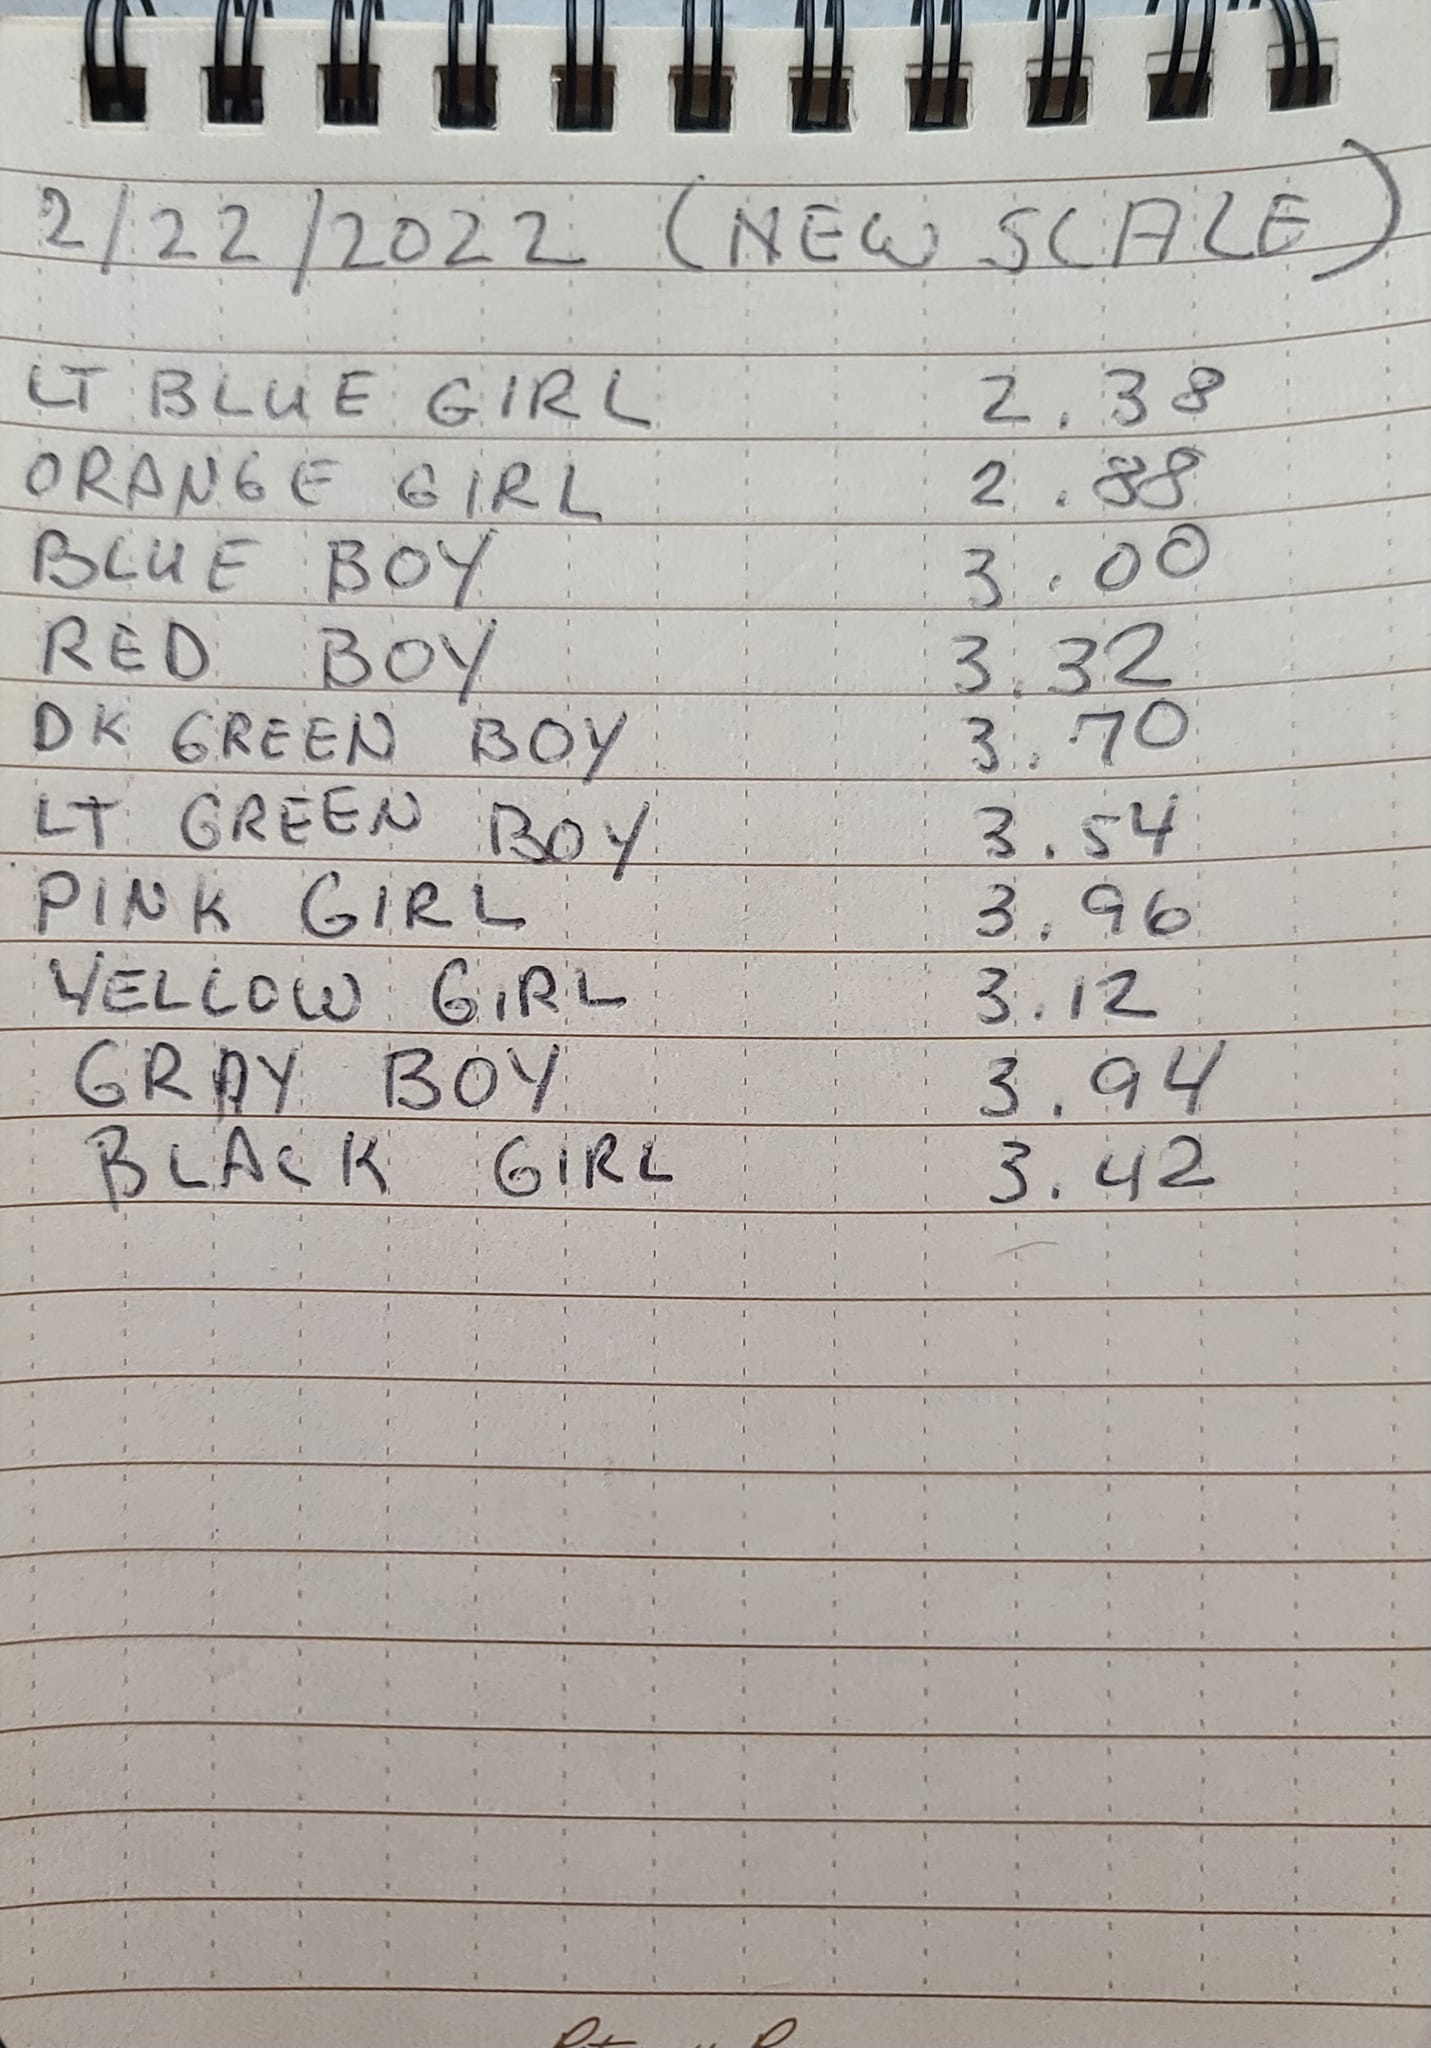 2/22/2022 (NEW SCALE)
LT BLUE GIRL 2.38
ORANGE GIRL 2.88
BLUE BOY 3.00
RED BOY 3.32
DK GREEN BOY 3.70
LT GREEN BOY 3.54
PINK GIRL 3.96
YELLOW GIRL 3.12
GRAY BOY 3.94
BLACK GIRL 3.42